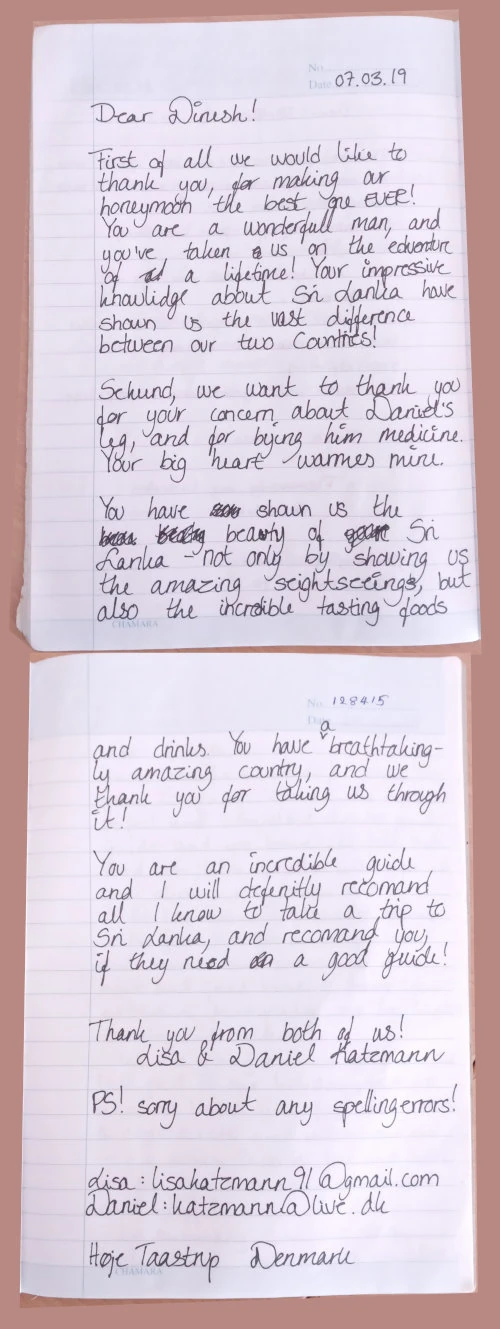 No.
Date 07.03.19
Dear Dinesh!
First of all we would like to
thank you, for making our
honeymoon the best one EVER!
You are a wonderfull man, and
you've, taken us on the edventure
of a lifetime! Your impressive
knowlidge about Sri Lanka have
shown us the vast difference
between our two Countries!
Sekund, we want to thank you
for your concern about Daniel's
leg, and for bying him medicine.
Your big heart warmes mine.
You have shown us the
beauty of Sri
Lanka - not only by showing us
the amazing seightseeings, but
also the incredible tasting foods
CHAMARA
No. 128415
Date
and drinks. You have a breathtaking-
ly amazing country, and we
thank you for taking us through
it!
You are an incredible guide
and I will defenitly recomand
all I know to take a trip to
Sri Lanka, and recomand you,
if they need a good guide!
Thank you from both of us!
Lisa & Daniel Katzmann
PS! sorry about any spellingerrors!
Lisa: lisakatzmann91@gmail.com
Daniel: katzmann@live.dk
Høje Taastrup Denmark
CHAMARA